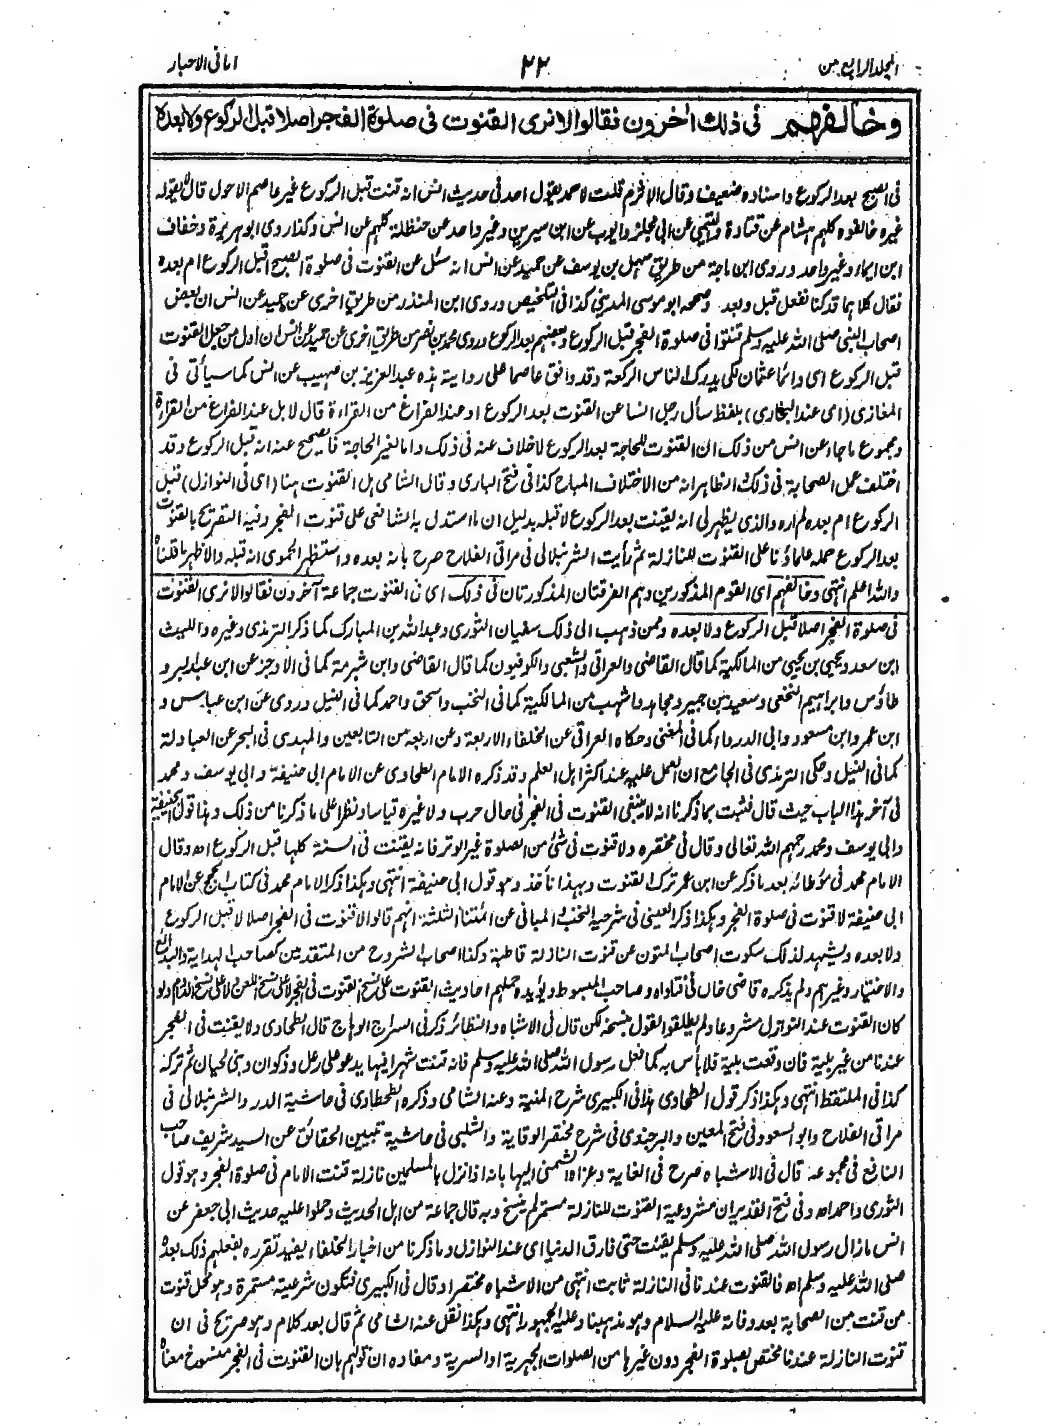 المجلد الرابع من
٢٢
امانی الاحبار
وخالفهم فی ذلك اٰخرون فقالوا لا نری القنوت فی صلوة الفجر اصلا قبل الرکوع ولا بعده
فی الصبح بعد الرکوع واسناده ضعیف وقال الاثرم قلت لاحمد یقول احد فی حدیث انس انه قنت قبل الرکوع غیر عاصم الاحول قال لا یقوله
غیره خالفوه کلهم هشام عن قتادة والتیمی عن ابی مجلز وایوب عن ابن سیرین وغیر واحد عن حنظلة کلهم عن انس وکذا روی ابو هریرة وخفاف
ابن ایماء وغیر واحد وروی ابن ماجة من طریق سهل بن یوسف عن حمید عن انس انه سئل عن القنوت فی صلوة الصبح أقبل الرکوع ام بعده
فقال کلاهما قد کنا نفعل قبل وبعد وصححه ابو موسی المدینی کذا فی التلخیص وروی ابن المنذر من طریق اخری عن حمید عن انس ان بعض
اصحاب النبی صلی الله علیه وسلم قنتوا فی صلوة الفجر قبل الرکوع وبعضهم بعد الرکوع وروی محمد بن نصر من طریق اخری عن حمید عن انس ان اول من جعل القنوت
قبل الرکوع ای دائما عثمان لکی یدرك الناس الرکعة وقد وافق عاصما علی روایته هذه عبد العزیز بن صهیب عن انس کما سیأتی فی
المغازی (ای عند البخاری) بلفظ سأل رجل انسا عن القنوت بعد الرکوع او عند الفراغ من القراءة قال لا بل عند الفراغ من القراءة
ومجموع ما جاء عن انس من ذلك ان القنوت للحاجة بعد الرکوع لا خلاف عنه فی ذلك واما لغیر الحاجة فالصحیح عنه انه قبل الرکوع وقد
اختلف عمل الصحابة فی ذلك والظاهر انه من الاختلاف المباح کذا فی فتح الباری وقال الشامی هل القنوت هنا (ای فی النوازل) قبل
الرکوع ام بعده لم اره والذی یظهر لی انه یقنت بعد الرکوع لا قبله بدلیل ان ما استدل به الشافعی علی قنوت الفجر وفیه التصریح بالقنوت
بعد الرکوع حمله علماؤنا علی القنوت للنازلة ثم رأیت الشرنبلالی فی مراقی الفلاح صرح بانه بعده واستظهر الحموی انه قبله والاظهر ما قلناه
والله اعلم انتهی وخالفهم ای القوم المذکورین وهم الفرقتان المذکورتان فی ذلك ای فی القنوت جماعة آخرون فقالوا لا نری القنوت
فی صلوة الفجر اصلا قبل الرکوع ولا بعده وممن ذهب الی ذلك سفیان الثوری وعبد الله بن المبارك کما ذکر الترمذی وغیره واللیث
ابن سعد ویحیی بن یحیی من المالکیة کما قال القاضی والعراقی والشعبی والکوفیون کما قال القاضی وابن شبرمة کما فی الاوجز عن ابن عبد البر و
طاؤس وابراهیم النخعی وسعید بن جبیر ومجاهد واشهب من المالکیة کما فی النخب واسحق واحمد کما فی النیل وروی عن ابن عباس و
ابن عمر وابن مسعود وابی الدرداء کما فی المغنی وحکاه العراقی عن الخلفاء الاربعة وعن اربعة من التابعین والمهدی فی البحر عن العبادلة
کما فی النیل وحکی الترمذی فی الجامع ان العمل علیه عند اکثر اهل العلم وقد ذکره الامام الطحاوی عن الامام ابی حنیفة وابی یوسف ومحمد
فی آخر هذا الباب حیث قال فثبت بما ذکرنا انه لا ینبغی القنوت فی الفجر فی حال حرب ولا غیره قیاسا ونظرا علی ما ذکرنا من ذلك وهذا قول ابی حنیفة
وابی یوسف ومحمد رحمهم الله تعالی وقال فی مختصره ولا قنوت فی شئ من الصلوة غیر الوتر فانه یقنت فی السنة کلها قبل الرکوع اه وقال
الامام محمد فی مؤطائه بعد ما ذکر عن ابن عمر ترك القنوت وبهذا نأخذ وهو قول ابی حنیفة انتهی وهکذا ذکر الامام محمد فی کتاب الحجج عن الامام
ابی حنیفة لا قنوت فی صلوة الفجر وهکذا ذکر العینی فی شرحیه النخب والمبانی عن ائمتنا الثلثة انهم قالوا لا قنوت فی الفجر اصلا لا قبل الرکوع
ولا بعده ویشهد لذلك سکوت اصحاب المتون عن قنوت النازلة قاطبة وکذا اصحاب الشروح من المتقدمین کصاحب الهدایة والبدائع
والاختیار وغیرهم ولم یذکره قاضی خان فی فتاواه وصاحب المبسوط ویؤیده حملهم احادیث القنوت علی نسخ القنوت فی الفجر لا علی نسخ اللعن ولا علی نسخ الدوام ولو
کان القنوت عند النوازل مشروعا ولم یطلقوا القول بنسخه لکن قال فی الاشباه والنظائر ذکر فی السراج الوهاج قال الطحاوی ولا یقنت فی الفجر
عندنا من غیر بلیة فان وقعت بلیة فلا بأس به کما فعل رسول الله صلی الله علیه وسلم فانه قنت شهرا فیها یدعو علی رعل وذکوان وبنی لحیان ثم ترکه
کذا فی الملتقط انتهی وهکذا ذکر قول الطحاوی هذا فی الکبیری شرح المنیة وعنه الشامی وذکره الطحطاوی فی حاشیة الدر والشرنبلالی فی
مراقی الفلاح وابو السعود فی فتح المعین والبرجندی فی شرح مختصر الوقایة والشلبی فی حاشیة تبیین الحقائق عن السید شریف صاحب
النافع فی مجموعه قال فی الاشباه صرح فی الغایة وعزاه الشمنی الیها بانه اذا نزل بالمسلمین نازلة قنت الامام فی صلوة الفجر وهو قول
الثوری واحمد اه وفی فتح القدیر ان مشروعیة القنوت للنازلة مستمر لم ینسخ وبه قال جماعة من اهل الحدیث وحملوا علیه حدیث ابی جعفر عن
انس ما زال رسول الله صلی الله علیه وسلم یقنت حتی فارق الدنیا ای عند النوازل وما ذکرنا من اخبار الخلفاء یفید تقرره بفعلهم ذلك بعده
صلی الله علیه وسلم اه فالقنوت عندنا فی النازلة ثابت انتهی من الاشباه مختصرا وقال فی الکبیری فتکون شرعیته مستمرة وهو محل قنوت
من قنت من الصحابة بعد وفاته علیه السلام وهو مذهبنا وعلیه الجمهور انتهی وهکذا نقل عنه الشامی ثم قال بعد کلام وهو صریح فی ان
قنوت النازلة عندنا مختص بصلوة الفجر دون غیرها من الصلوات الجهریة او السریة ومفاده ان قولهم بان القنوت فی الفجر منسوخ معناه